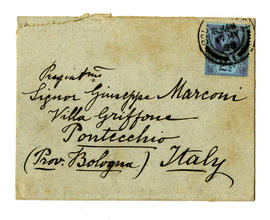 Pregiatmo
Signor Giuseppe Marconi
Villa Griffone
Pontecchio
(Prov. Bologna) Italy